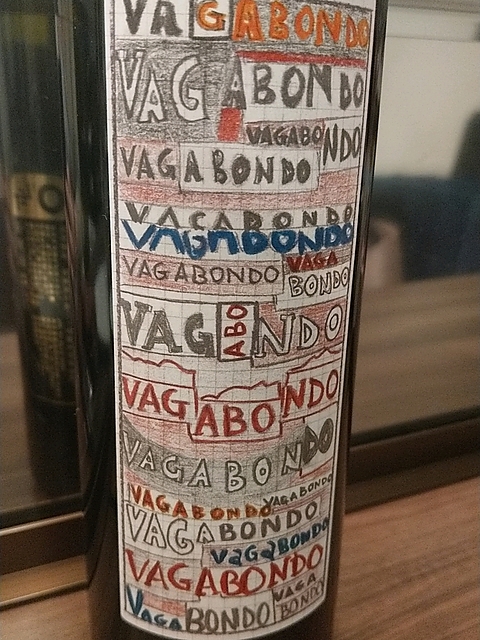 VAGABONDO
VAGABONDO
VAGABONDO
VAGABONDO
VAGABONDO
VAGABONDO
VAGABONDO
VAGA
BONDO
VAGABONDO
VAGABONDO
VAGABONDO
VAGABONDO
VAGABONDO
VAGABONDO
VAGABONDO
VAGABONDO
VAGABONDO
VAGA
BONDO